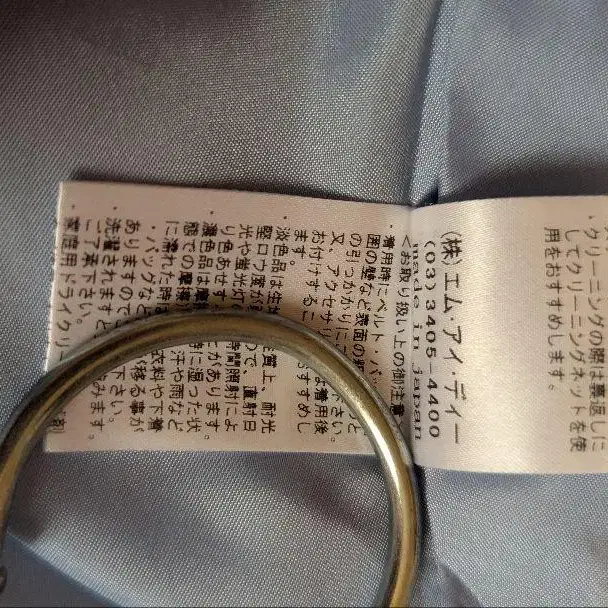 ・クリーニングの際は裏返しに
してクリーニングネットを使
用をおすすめします。
(株)エム・アイ・ディー
(03)3405-4400
made in japan
<お取り扱い上の御注意>
・着用時にベルト・バッ
囲の壁など表面の粗
の引つかかりにご 下さい。
又、アクセサリ は着用後
お付けするこ おすすめし
ます。
淡色品は生 性質上、耐光
堅ロウ度が で、直射日
光や蛍光灯 時間照射によ
り色あせす とがあります。
濃色品は摩擦 時に湿った状
態での摩擦 汗や雨など
に濡れた時は 衣料や下着
・バッグなど 色が移る事が
ありますので 下さい。
洗濯されますと 縮みます。
ご了承下さい。
家庭用ドライクリー 剤